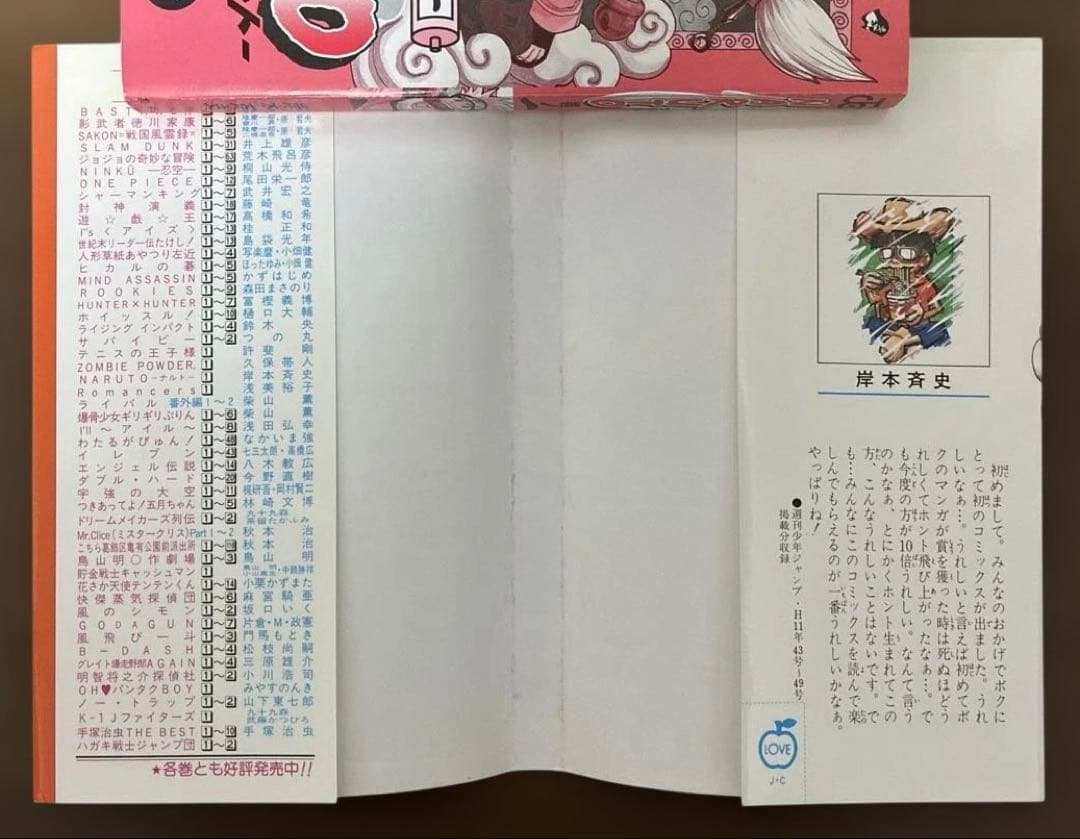 影武者徳川家康 1～6
SAKON=戦国風雲録= 1～5
SLAM DUNK 1～31 井上雄彦
ジョジョの奇妙な冒険 1～63 荒木飛呂彦
NINKŪ ―忍空― 1～9 桐山光侍
ONE PIECE 1～12 尾田栄一郎
シャーマンキング 1～7 武井宏之
封神演義 1～18 藤崎竜
遊☆戯☆王 1～17 高橋和希
I"s〈アイズ〉 1～13 桂正和
世紀末リーダー伝たけし! 1～13 島袋光年
人形草紙あやつり左近 1～4 写楽麿・小畑健
ヒカルの碁 1～5 ほったゆみ・小畑健
MIND ASSASSIN 1～5 かずはじめ
ROOKIES 1～9 森田まさのり
HUNTER×HUNTER 1～7 冨樫義博
ホイッスル! 1～10 樋口大輔
ライジング インパクト 1～4 鈴木央
サバイビー 1～2 つの丸
テニスの王子様 1 許斐剛
ZOMBIE POWDER. 1 久保帯人
NARUTO―ナルト― 1 岸本斉史
Romancers 1 浅美裕子
ライバル 番外編1～2 柴山薫
爆骨少女ギリギリぷりん 1～6 柴山薫
I'll ～アイル～ 1～8 浅田弘幸
わたるがぴゅん! 1～48 なかいま強
イレブン 1～43 七三太朗・高橋広
エンジェル伝説 1～14 八木教広
ダブル・ハード 1～20 今野直樹
宇強の大空 1～11 梶研吾・岡村賢二
つきあってよ!五月ちゃん 1～5 林崎文博
ドリームメイカーズ列伝 1～2 九十九森 茶留たかふみ
Mr.Clice(ミスタークリス)Part1～2 秋本治
こちら葛飾区亀有公園前派出所 秋本治
鳥山明○作劇場 1～3 鳥山明
貯金戦士キャッシュマン 1
花さか天使テンテンくん 1～14 小栗かずまた
快傑蒸気探偵団 1～6 麻宮騎亜
風のシモン 1～2 坂口いく
GODAGUN 1～7 片倉・M・政憲
風飛び一斗 1～3 門馬もとき
B-DASH 1～4 松枝尚嗣
グレイト爆走野郎AGAIN 1～4 三原雄介
明智将之介探偵社 1～2 小川浩司
OH♥バンタクBOY 1 みやすのんき
ノー・トラップ 1～2 山下東七郎
K-1Jファイターズ 1 九十九森 武藤かつひろ
手塚治虫THE BEST 1～10 手塚治虫
ハガキ戦士ジャンプ団 1～2
★各巻とも好評発売中!!
岸本斉史
初めまして。みんなのおかげでボクに
とって初のコミックスが出ました。うれ
しいなぁ…。うれしいと言えば初めてボ
クのマンガが賞を獲った時は死ぬほどう
れしくてホント飛び上がったなぁ…。で
も今度の方が10倍うれしい。なんて言う
のかなぁ、とにかくホント生まれてこの
方、こんなうれしいことはないです。で
も…みんなにこのコミックスを読んで楽
しんでもらえるのが一番うれしいかなぁ。
やっぱりね!
●週刊少年ジャンプ・H11年43号～49号
掲載分収録
LOVE
J・C